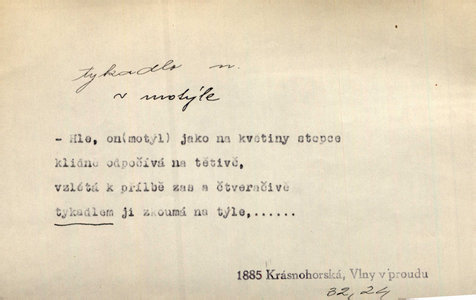 tykadlo n.
v motýle
- Hle, on(motýl) jako na květiny stopce
klidně odpočívá na tětivě,
vzlétá k přílbě zas a čtveračivě
tykadlem ji zkoumá na týle,......
1885 Krásnohorská, Vlny v proudu
32,24